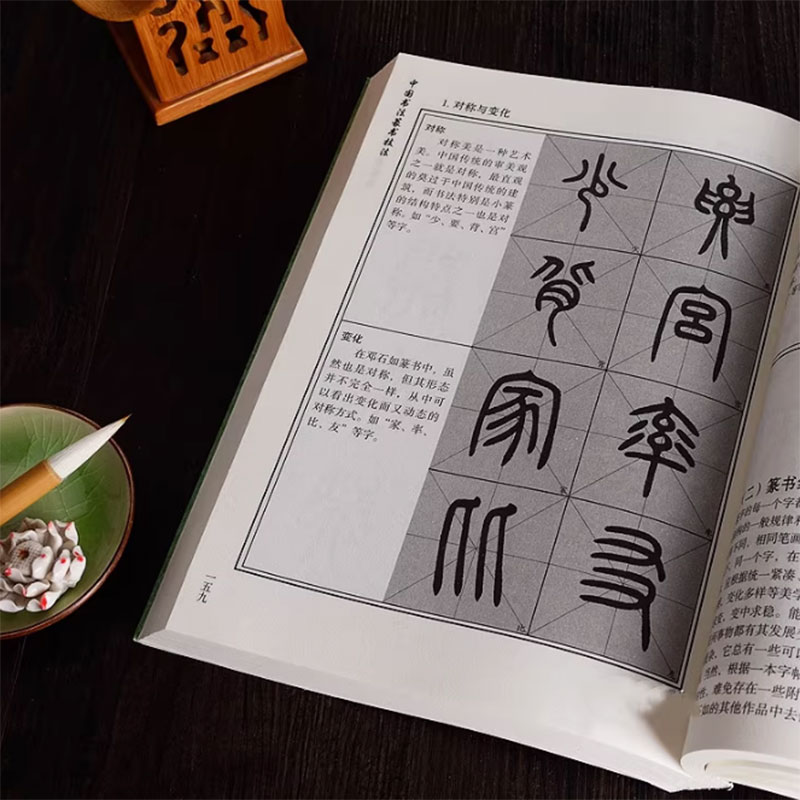 中国书法篆书技法
1. 对称与变化
对称
对称美是一种艺术
美。中国传统的审美观
之一就是对称，最直观
的莫过于中国传统的建
筑，而书法特别是小篆
的结构特点之一也是对
称。如“少、要、背、宫”
等字。
少 要
背 宫
变化
在邓石如篆书中，虽
然也是对称，但其形态
并不完全一样，从中可
以看出变化而又动态的
对称方式。如“家、率、
比、友”等字。
家 率
比 友
一五九
（二）篆书
的每一个字
的一般规律
不同，相同笔画
同一个字，在
根据统一紧凑
变化多样等美学
变中求稳。能
事物都有其发展
它总有一些可以
当然，根据一本字帖
性，难免存在一些附
的其他作品中去